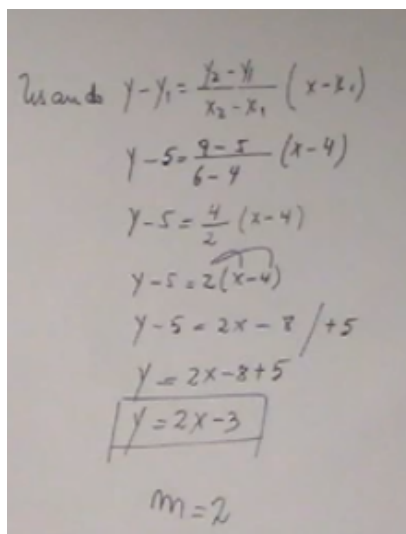 Usando y-y₁ = \frac{y₂-y₁}{x₂-x₁} (x-x₁)
y-5 = \frac{9-5}{6-4} (x-4)
y-5 = \frac{4}{2} (x-4)
y-5 = 2(x-4)
y-5 = 2x-8 /+5
y = 2x-8+5
y = 2x-3
m = 2